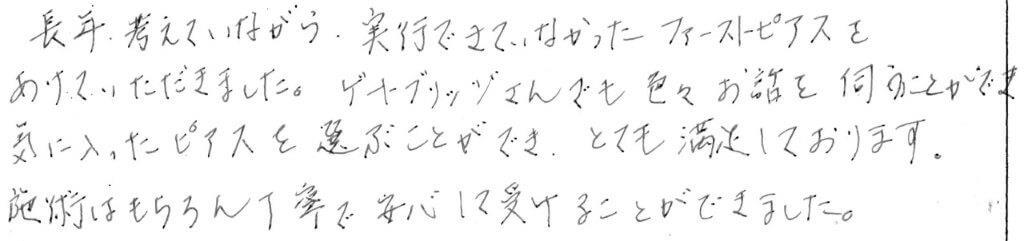 長年、考えていながら、実行できていなかったファーストピアスを
あけていただきました。ゲヤブリッヅさんでも色々お話を伺うことができ
気に入ったピアスを選ぶことができ、とても満足しております。
施術はもちろん丁寧で安心して受けることができました。